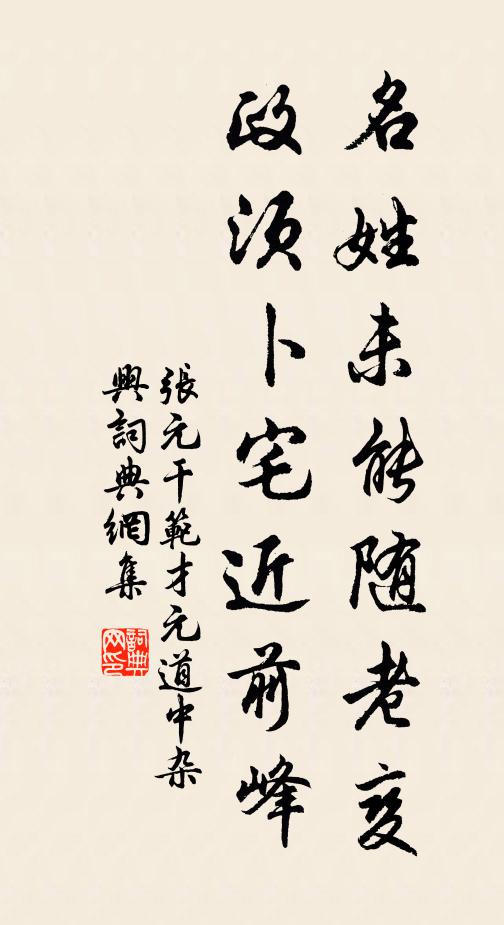 名姓未能随老变
政须卜宅近前峰
張元干範才元道中杂
興詞典網集
詞典网印